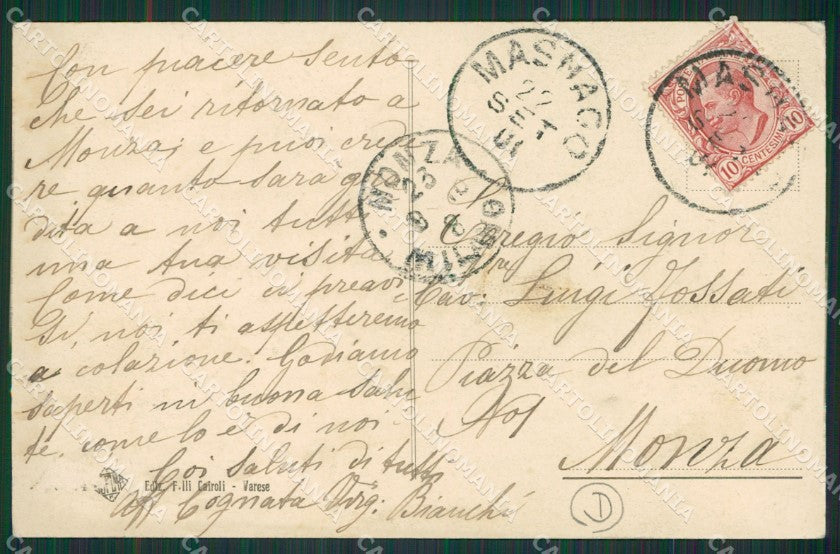 Con piacere sento
che sei ritornato a
Monza; e puoi crede
re quanto sarà gra
dita a noi tutti
una tua visita.
Come dici ci preavi
si, noi ti aspetteremo
a colazione. Godiamo
saperti in buona salu
te, come lo è di noi
Coi saluti di tutti
Aff Cognata Virg: Bianchi
Ediz. F.lli Cairoli - Varese
MASNAGO
22
SET
MONZA
23
MILANO
MASN
POSTE
10 CENTESIMI 10
Egregio Signor
Cav: Luigi Fossati
Piazza del Duomo
No1
Monza
D
CARTOLINOMANIA